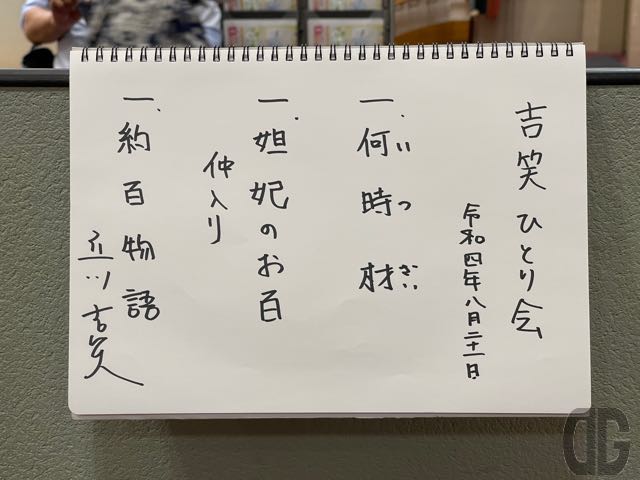 吉笑ひとり会
令和四年八月二十一日
一、何時材
いつざい
一、妲妃のお百
仲入り
一、約百物語
立川吉笑
DG